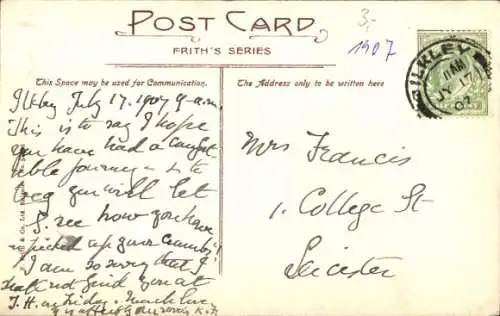 POST CARD
FRITH'S SERIES
3,-
1907
This Space may be used for Communication.
The Address only to be written here
ILKLEY
JY 17
07
Ilkley July 17. 1907 9 a.m.
This is to say I hope
you have had a comfort-
able journey &
will let
I. see how you have
picked up your
I am so sorry that I
shall not find you at
T. H. on Friday. Much love
Mrs Francis
1. College St
Leicester